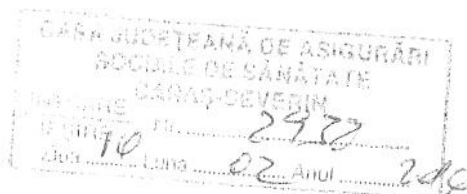 CASA JUDEȚEANĂ DE ASIGURĂRI
SOCIALE DE SĂNĂTATE
CARAȘ-SEVERIN
INTRARE
Nr. ..........
Ziua ..... 10 ..... Luna ..... 02 ..... Anul ..........